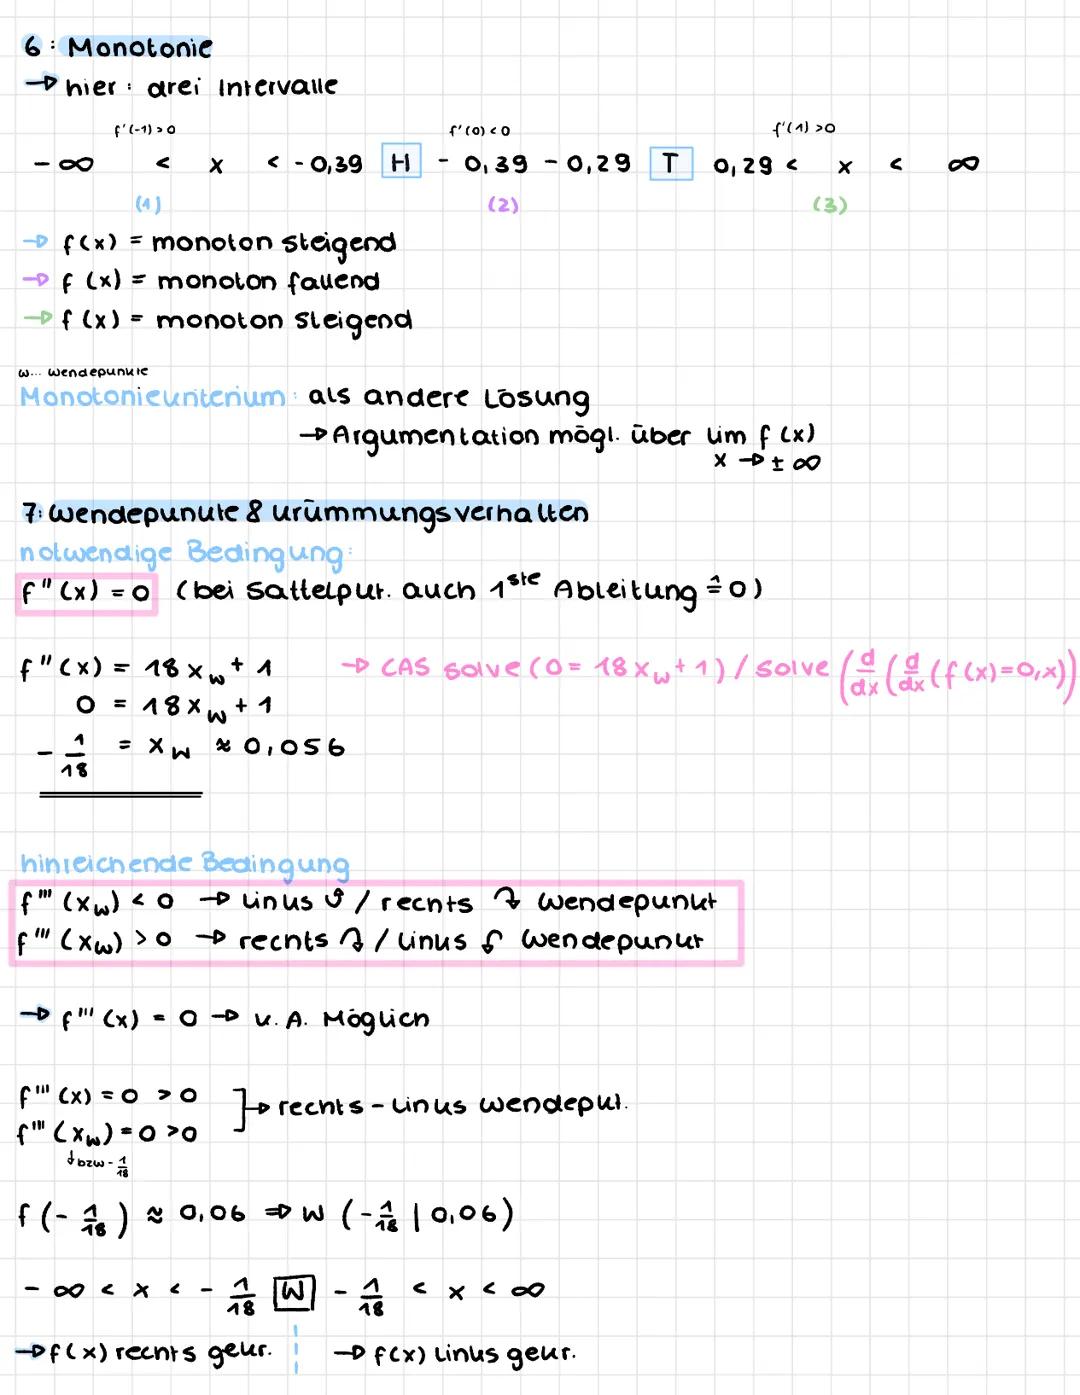 6: Monotonie
→ hier: drei Intervalle
f'(-1)>0 f'(0)<0 f'(1)>0
-∞ < x < -0,39 H -0,39 -0,29 T 0,29 < x < ∞
(1) (2) (3)
→ f(x) = monoton steigend
→ f(x) = monoton fallend
→ f(x) = monoton steigend
W... Wendepunkte
Monotoniekriterium: als andere Lösung
→ Argumentation mögl. über lim f(x)
x → ± ∞
7: Wendepunkte & Krümmungsverhalten
notwendige Bedingung:
f''(x) = 0 (bei Sattelpkt. auch 1ste Ableitung ≙ 0)
f''(x) = 18x_w + 1 → CAS solve(0 = 18x_w + 1) / solve (d/dx (d/dx (f(x)=0,x))
0 = 18x_w + 1
-1/18 = x_w ≈ 0,056
hinreichende Bedingung
f'''(x_w) < 0 → links ↺ / rechts ↷ Wendepunkt
f'''(x_w) > 0 → rechts ↷ / links ↺ Wendepunkt
→ f'''(x) = 0 → k. A. Möglich
f'''(x) = 0 > 0
→ rechts-links Wendepkt.
f'''(x_w) = 0 > 0
↓ bzw -1/18
f(-1/18) ≈ 0,06 ⇒ W (-1/18 | 0,06)
-∞ < x < -1/18 W -1/18 < x < ∞
→ f(x) rechts gekr. → f(x) links gekr.